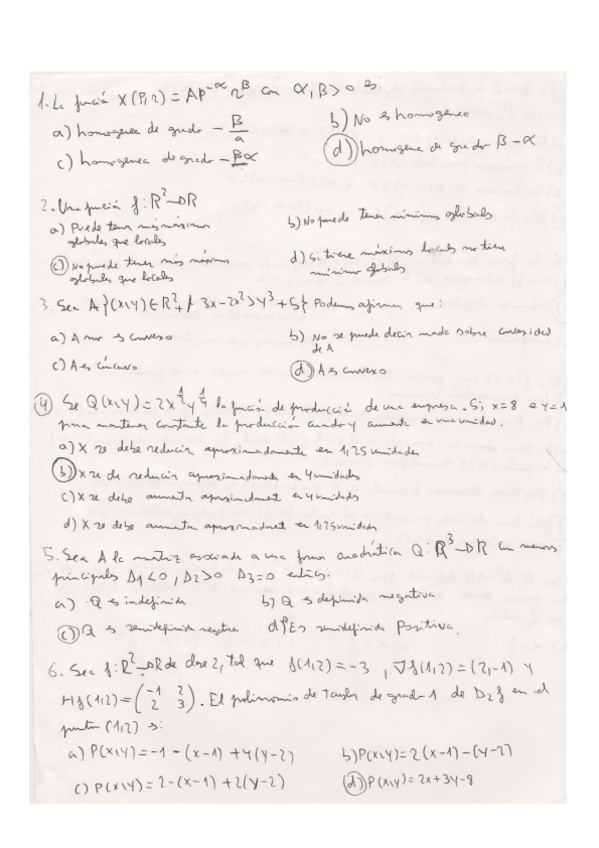 1. La función X(P,r) = AP^-α r^β con α, β > 0 es:
a) homogénea de grado - β/a
b) No es homogénea
c) homogénea de grado - βα
d) homogénea de grado β - α
2. Una función f: R² → R
a) Puede tener más máximos
globales que locales
b) No puede tener mínimos globales
c) No puede tener más máximos
globales que locales
d) Si tiene máximos locales no tiene
mínimos globales
3. Sea A {(x,y) ∈ R² / 3x - 2x² > y³ + 5} Podemos afirmar que:
a) A no es convexo
b) No se puede decir nada sobre
de A
c) A es cóncavo
d) A es convexo
4) Se Q(x,y) = 2x^1/2 y^1/4 la función de producción de una empresa. Si x=8 e y=1
para mantener constante la producción cuando y aumenta en una unidad.
a) X se debe reducir aproximadamente en 1,25 unidades
b) X se de reducir aproximadamente en 4 unidades
c) X se debe aumentar aproximadament en 4 unidades
d) X se debe aumentar aproximadament en 1,25 unidades
5. Sea A la matriz asociada a una forma cuadrática Q: R³ → R con menores
principales Δ1<0, Δ2>0 Δ3=0 entonces.
a) Q es indefinida
b) Q es definida negativa
c) Q es semidefinida negativa
d) Es semidefinida Positiva.
6. Sea f: R² → R de clase 2, tal que f(1,2) = -3, ∇f(1,2) = (2,-1) y
Hf(1,2) = (-1 2
2 3). El polinomio de Taylor de grado 1 de D2f en el
punto (1,2) es:
a) P(x,y) = -1 - (x-1) + 4(y-2)
b) P(x,y) = 2(x-1) - (y-2)
c) P(x,y) = 2 - (x-1) + 2(y-2)
d) P(x,y) = 2x + 3y - 8